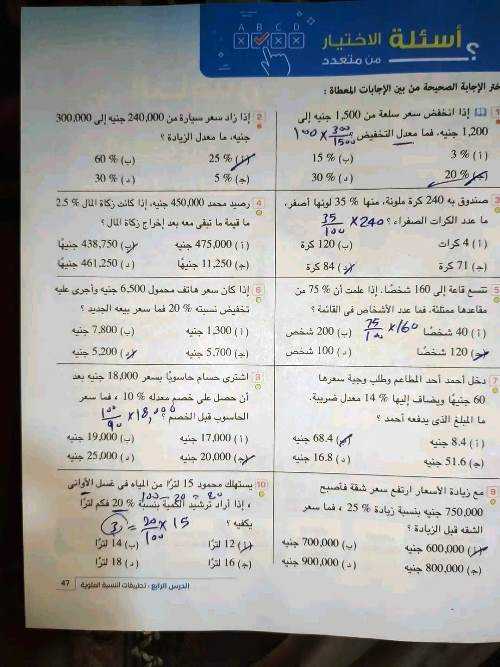 A B C D
أسئلة الاختيار
من متعدد
؟
ختر الإجابة الصحيحة من بين الإجابات المعطاة :
1 إذا انخفض سعر سلعة من 1,500 جنيه إلى
1,200 جنيه، فما معدل التخفيض ؟ 300/1500 × 100
(أ) 3 % (ب) 15 %
(ج) 20 % (د) 30 %
2 إذا زاد سعر سيارة من 240,000 جنيه إلى 300,000
جنيه، ما معدل الزيادة ؟
(أ) 25 % (ب) 60 %
(ج) 5 % (د) 30 %
3 صندوق به 240 كرة ملونة، منها 35 % لونها أصفر،
ما عدد الكرات الصفراء ؟ 35/100 × 240
(أ) 4 كرات (ب) 120 كرة
(ج) 71 كرة (د) 84 كرة
4 رصيد محمد 450,000 جنيه، إذا كانت زكاة المال 2.5 %
ما قيمة ما تبقى معه بعد إخراج زكاة المال ؟
(أ) 475,000 جنيه (ب) 438,750 جنيهًا
(ج) 11,250 جنيهًا (د) 461,250 جنيهًا
5 تتسع قاعة إلى 160 شخصًا، إذا علمت أن 75 % من
مقاعدها ممتلئة، فما عدد الأشخاص في القائمة ؟
75/100 × 160
(أ) 40 شخصًا (ب) 200 شخص
(ج) 120 شخصًا (د) 100 شخص
6 إذا كان سعر هاتف محمول 6,500 جنيه وأجرى عليه
تخفيض نسبته 20 % فما سعر بيعه الجديد ؟
(أ) 1,300 جنيه (ب) 7,800 جنيه
(ج) 5,700 جنيه (د) 5,200 جنيه
7 دخل أحمد أحد المطاعم وطلب وجبة سعرها
60 جنيهًا ويضاف إليها 14 % معدل ضريبة.
ما المبلغ الذي يدفعه أحمد ؟
(أ) 8.4 جنيه (ب) 68.4 جنيه
(ج) 51.6 جنيه (د) 16.8 جنيه
8 اشترى حسام حاسوبًا بسعر 18,000 جنيه بعد
أن حصل على خصم معدله 10 % ، فما سعر
الحاسوب قبل الخصم ؟ 100/90 × 18,000
(أ) 17,000 جنيه (ب) 19,000 جنيه
(ج) 20,000 جنيه (د) 25,000 جنيه
9 مع زيادة الأسعار ارتفع سعر شقة فأصبح
750,000 جنيه بنسبة زيادة 25 % ، فما سعر
الشقة قبل الزيادة ؟
(أ) 600,000 جنيه (ب) 700,000 جنيه
(ج) 800,000 جنيه (د) 900,000 جنيه
10 يستهلك محمود 15 لترًا من المياه في غسل الأواني
، إذا أراد ترشيد الكمية بنسبة 20 % فكم لترًا
يكفيه ؟ 3 = 20/100 × 15
(أ) 12 لترًا (ب) 14 لترًا
(ج) 16 لترًا (د) 18 لترًا
الدرس الرابع : تطبيقات النسبة المئوية 47